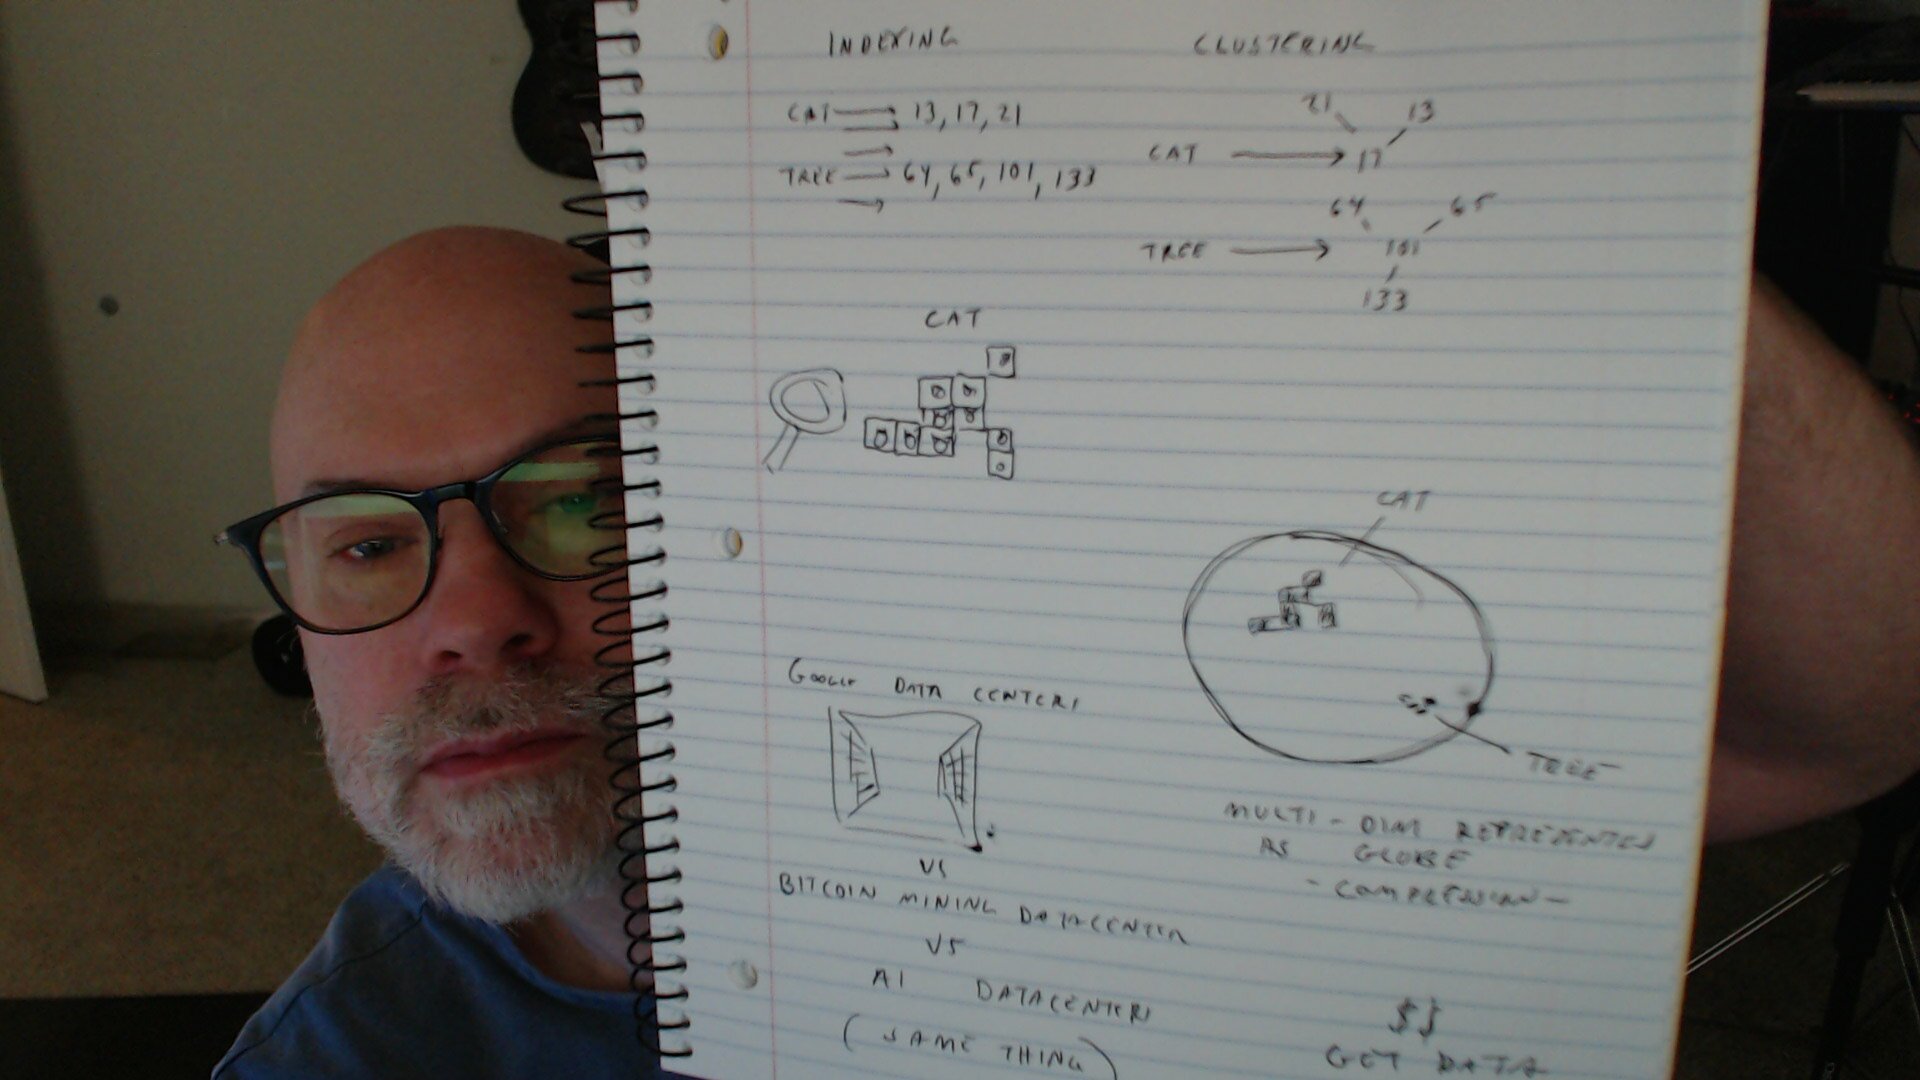 INDEXING
CAT 13, 17, 21
TREE 64, 65, 101, 133
CLUSTERING
21 13
CAT 17
64 65
TREE 101
133
CAT
CAT
TREE
MULTI-DIM REPRESENTED
AS GLOBE
- COMPRESSION -
GOOGLE DATA CENTERS
VS
BITCOIN MINING DATACENTER
VS
AI DATACENTERS
(SAME THING)
$$
GET DATA